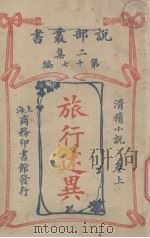 說部叢書
二集
第十七編
滑稽小說 卷上
旅行述異
上海
商務印書館發行